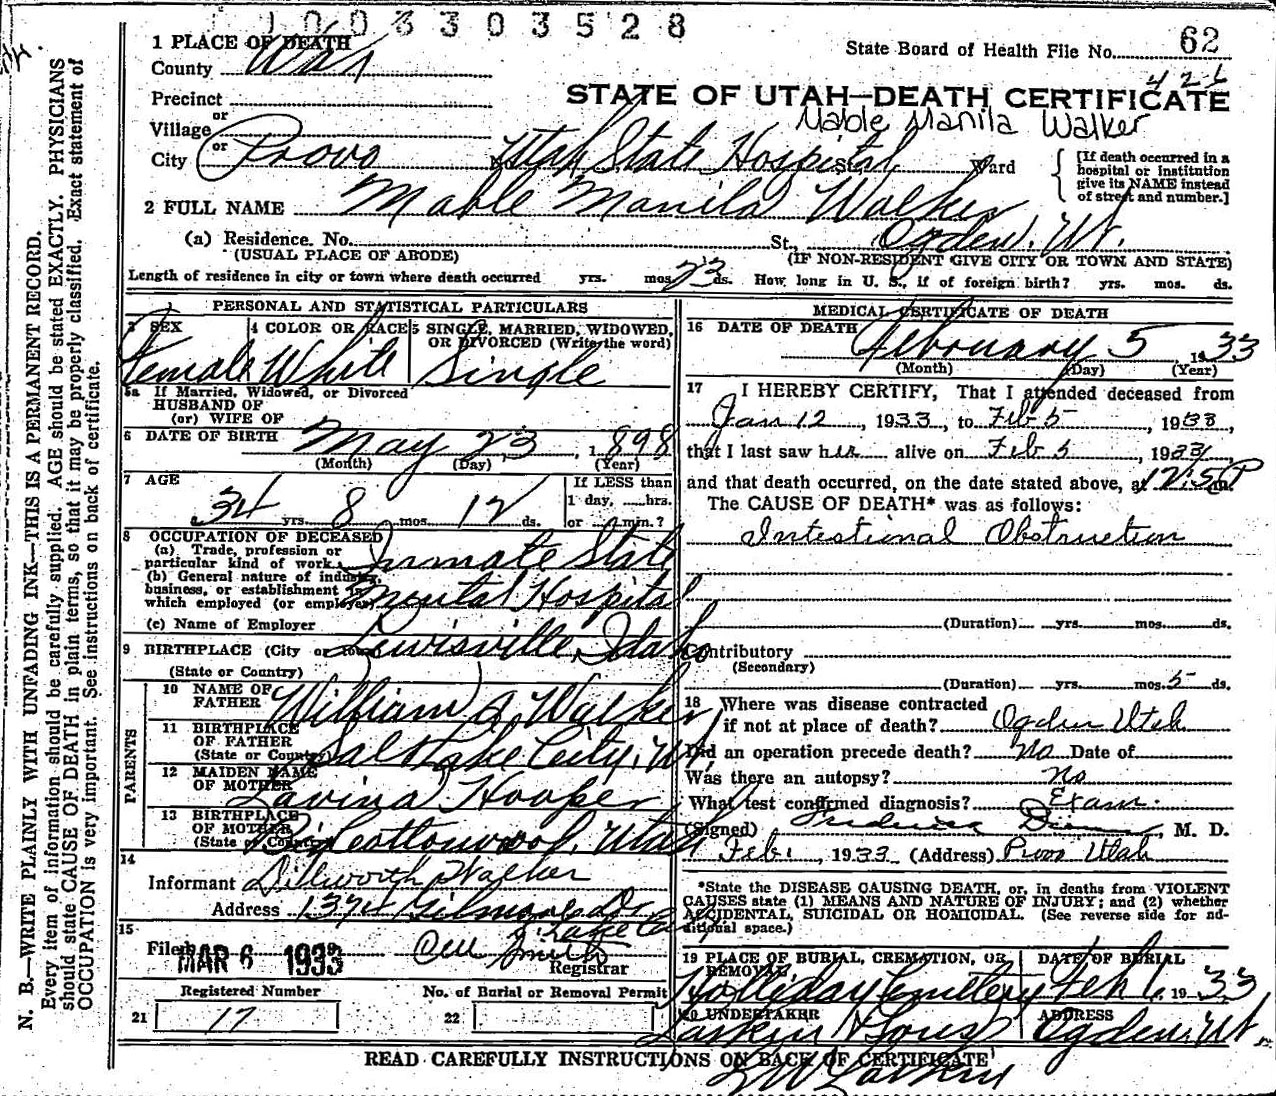 1003303528
1 PLACE OF DEATH
State Board of Health File No. 62
County Utah
426
Precinct
STATE OF UTAH—DEATH CERTIFICATE
or
Village
Mable Manila Walker
or
City Provo No. Utah State Hospital St. Ward
[If death occurred in a hospital or institution give its NAME instead of street and number.]
2 FULL NAME Mable Manila Walker
(a) Residence. No. St., Ogden, Ut.
(USUAL PLACE OF ABODE) (IF NON-RESIDENT GIVE CITY OR TOWN AND STATE)
Length of residence in city or town where death occurred yrs. mos. 23 ds. How long in U. S., if of foreign birth? yrs. mos. ds.
PERSONAL AND STATISTICAL PARTICULARS
3 SEX 4 COLOR OR RACE 5 SINGLE, MARRIED, WIDOWED, OR DIVORCED (Write the word)
Female White Single
5a If Married, Widowed, or Divorced
HUSBAND OF
(or) WIFE OF
6 DATE OF BIRTH May 23, 1898
(Month) (Day) (Year)
7 AGE If LESS than
34 yrs. 8 mos. 12 ds. 1 day, hrs. or min.?
8 OCCUPATION OF DECEASED
(a) Trade, profession or particular kind of work Inmate State
(b) General nature of industry, business, or establishment in which employed (or employer) Mental Hospital
(c) Name of Employer
9 BIRTHPLACE (City or town) Lewisville, Idaho
(State or Country)
PARENTS
10 NAME OF FATHER William A Walker
11 BIRTHPLACE OF FATHER (State or Country) Salt Lake City, Ut.
12 MAIDEN NAME OF MOTHER Lavina Hooper
13 BIRTHPLACE OF MOTHER (State or Country) Big Cottonwood, Utah
14
Informant Dilworth Walker
Address 1374 Gilmore Dr
S. Lake City
15
Filed MAR 6 1933 Smith
Registrar
Registered Number No. of Burial or Removal Permit
21 17 22
MEDICAL CERTIFICATE OF DEATH
16 DATE OF DEATH February 5 1933
(Month) (Day) (Year)
17 I HEREBY CERTIFY, That I attended deceased from
Jan 12, 1933, to Feb 5, 1933,
that I last saw her alive on Feb 5, 1933,
and that death occurred, on the date stated above, at 12:5 P m.
The CAUSE OF DEATH* was as follows:
Intestional Obstruction
(Duration) yrs. mos. ds.
Contributory
(Secondary)
(Duration) yrs. mos. 5 ds.
18 Where was disease contracted
if not at place of death? Ogden Utah
Did an operation precede death? No Date of
Was there an autopsy? no
What test confirmed diagnosis? Exam.
(Signed) Frederick, M. D.
Feb., 1933 (Address) Provo Utah
*State the DISEASE CAUSING DEATH, or, in deaths from VIOLENT
CAUSES state (1) MEANS AND NATURE OF INJURY; and (2) whether
ACCIDENTAL, SUICIDAL OR HOMICIDAL. (See reverse side for additional space.)
19 PLACE OF BURIAL, CREMATION, OR REMOVAL DATE OF BURIAL
Holliday Cemetery Feb 1933
20 UNDERTAKER ADDRESS
Larkin & Sons Ogden, Ut.
READ CAREFULLY INSTRUCTIONS ON BACK OF CERTIFICATE
L W Larkin
N. B.—WRITE PLAINLY WITH UNFADING INK—THIS IS A PERMANENT RECORD.
Every item of information should be carefully supplied. AGE should be stated EXACTLY. PHYSICIANS
should state CAUSE OF DEATH in plain terms, so that it may be properly classified. Exact statement of
OCCUPATION is very important. See instructions on back of certificate.